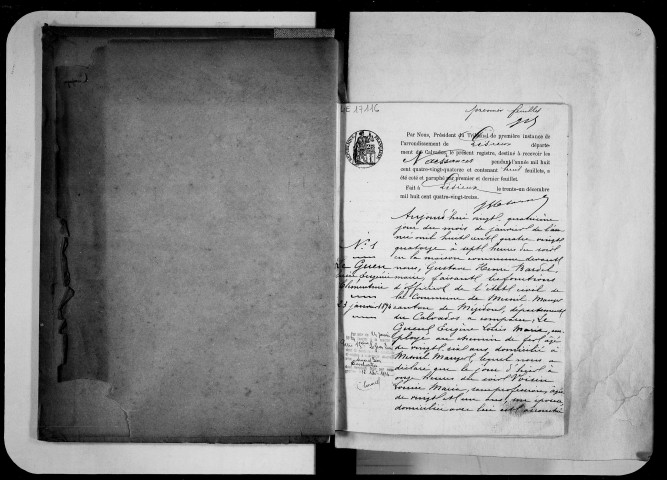 E 17116
premier feuillet
Par Nous, Président du Tribunal de première instance de
l'arrondissement de Lisieux départe-
ment du Calvados, le présent registre, destiné à recevoir les
Naissances pendant l'année mil huit
cent quatre-vingt-quatorze et contenant huit feuillets, a
été coté et paraphé par premier et dernier feuillet.
Fait à Lisieux le trente-un décembre
mil huit cent quatre-vingt-treize.
N° 1
Le Guen
Clémentine
23 janvier 1894
Aujourd'hui vingt-quatrième
jour du mois de janvier de l'an
mil huit cent quatre vingt
quatorze à sept heures du soir
en la maison commune devant
nous, Gustave Henri
maire faisant les fonctions
d'officier de l'état civil de
la Commune de Mesnil Mauger
canton de Mézidon, département
du Calvados a comparu, Le
Eugène Louis Marie, em-
ployé au chemin de fer, âgé
de vingt six ans, domicilié à
Mesnil Mauger, lequel nous a
déclaré que le jour d'hier à
onze heures du soir Voisin
Louise Marie, sans profession, âgée
de vingt et un ans, son épouse,
domiciliée avec lui est accouchée